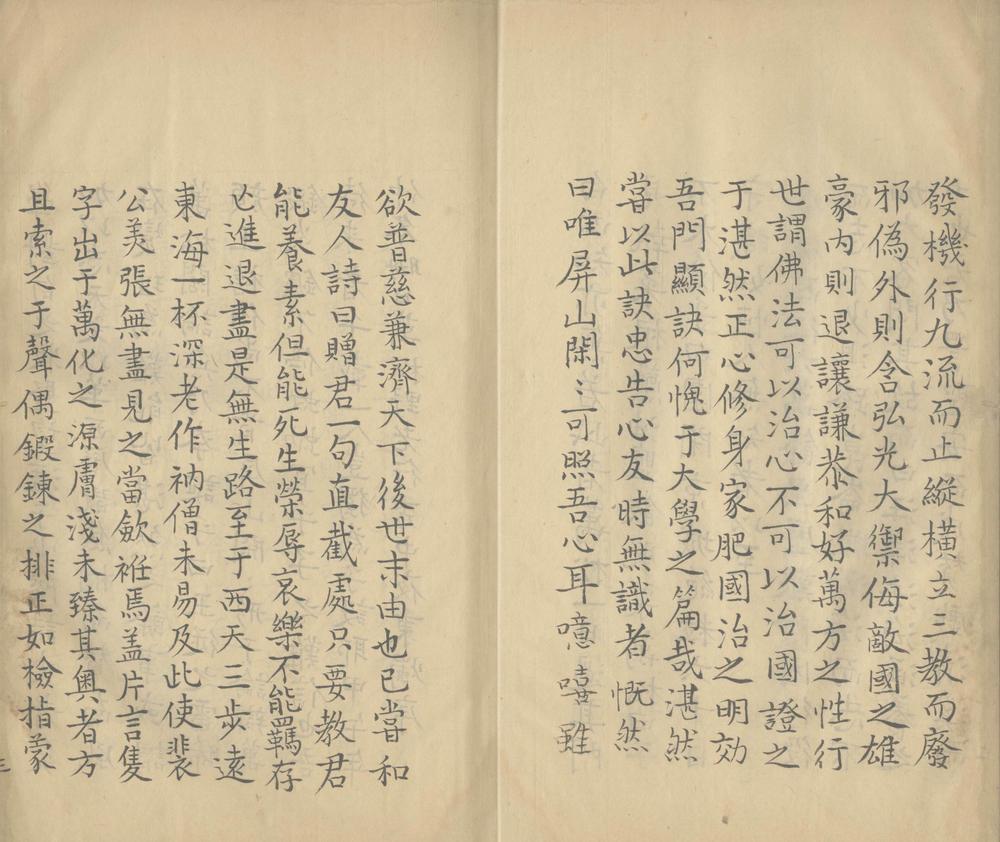 發機行九流而止縱橫立三教而廢
邪偽外則含弘光大禦侮敵國之雄
豪內則退讓謙恭和好萬方之性行
世謂佛法可以治心不可以治國證之
于湛然正心修身家肥國治之明効
吾門顯訣何愧于大學之篇哉湛然
嘗以此訣忠告心友時無識者慨然
曰唯屏山閑〻可照吾心耳噫嘻雖
欲普慈兼濟天下後世末由也已嘗和
友人詩曰贈君一句直截處只要教君
能養素但能死生榮辱哀樂不能羈存
亡進退盡是無生路至于西天三步遠
東海一杯深老作衲僧未易及此使裴
公美張無盡見之當斂衽焉盖片言隻
字出于萬化之源膚淺未臻其奧者方
且索之于聲偶鍛鍊之排正如檢指蒙